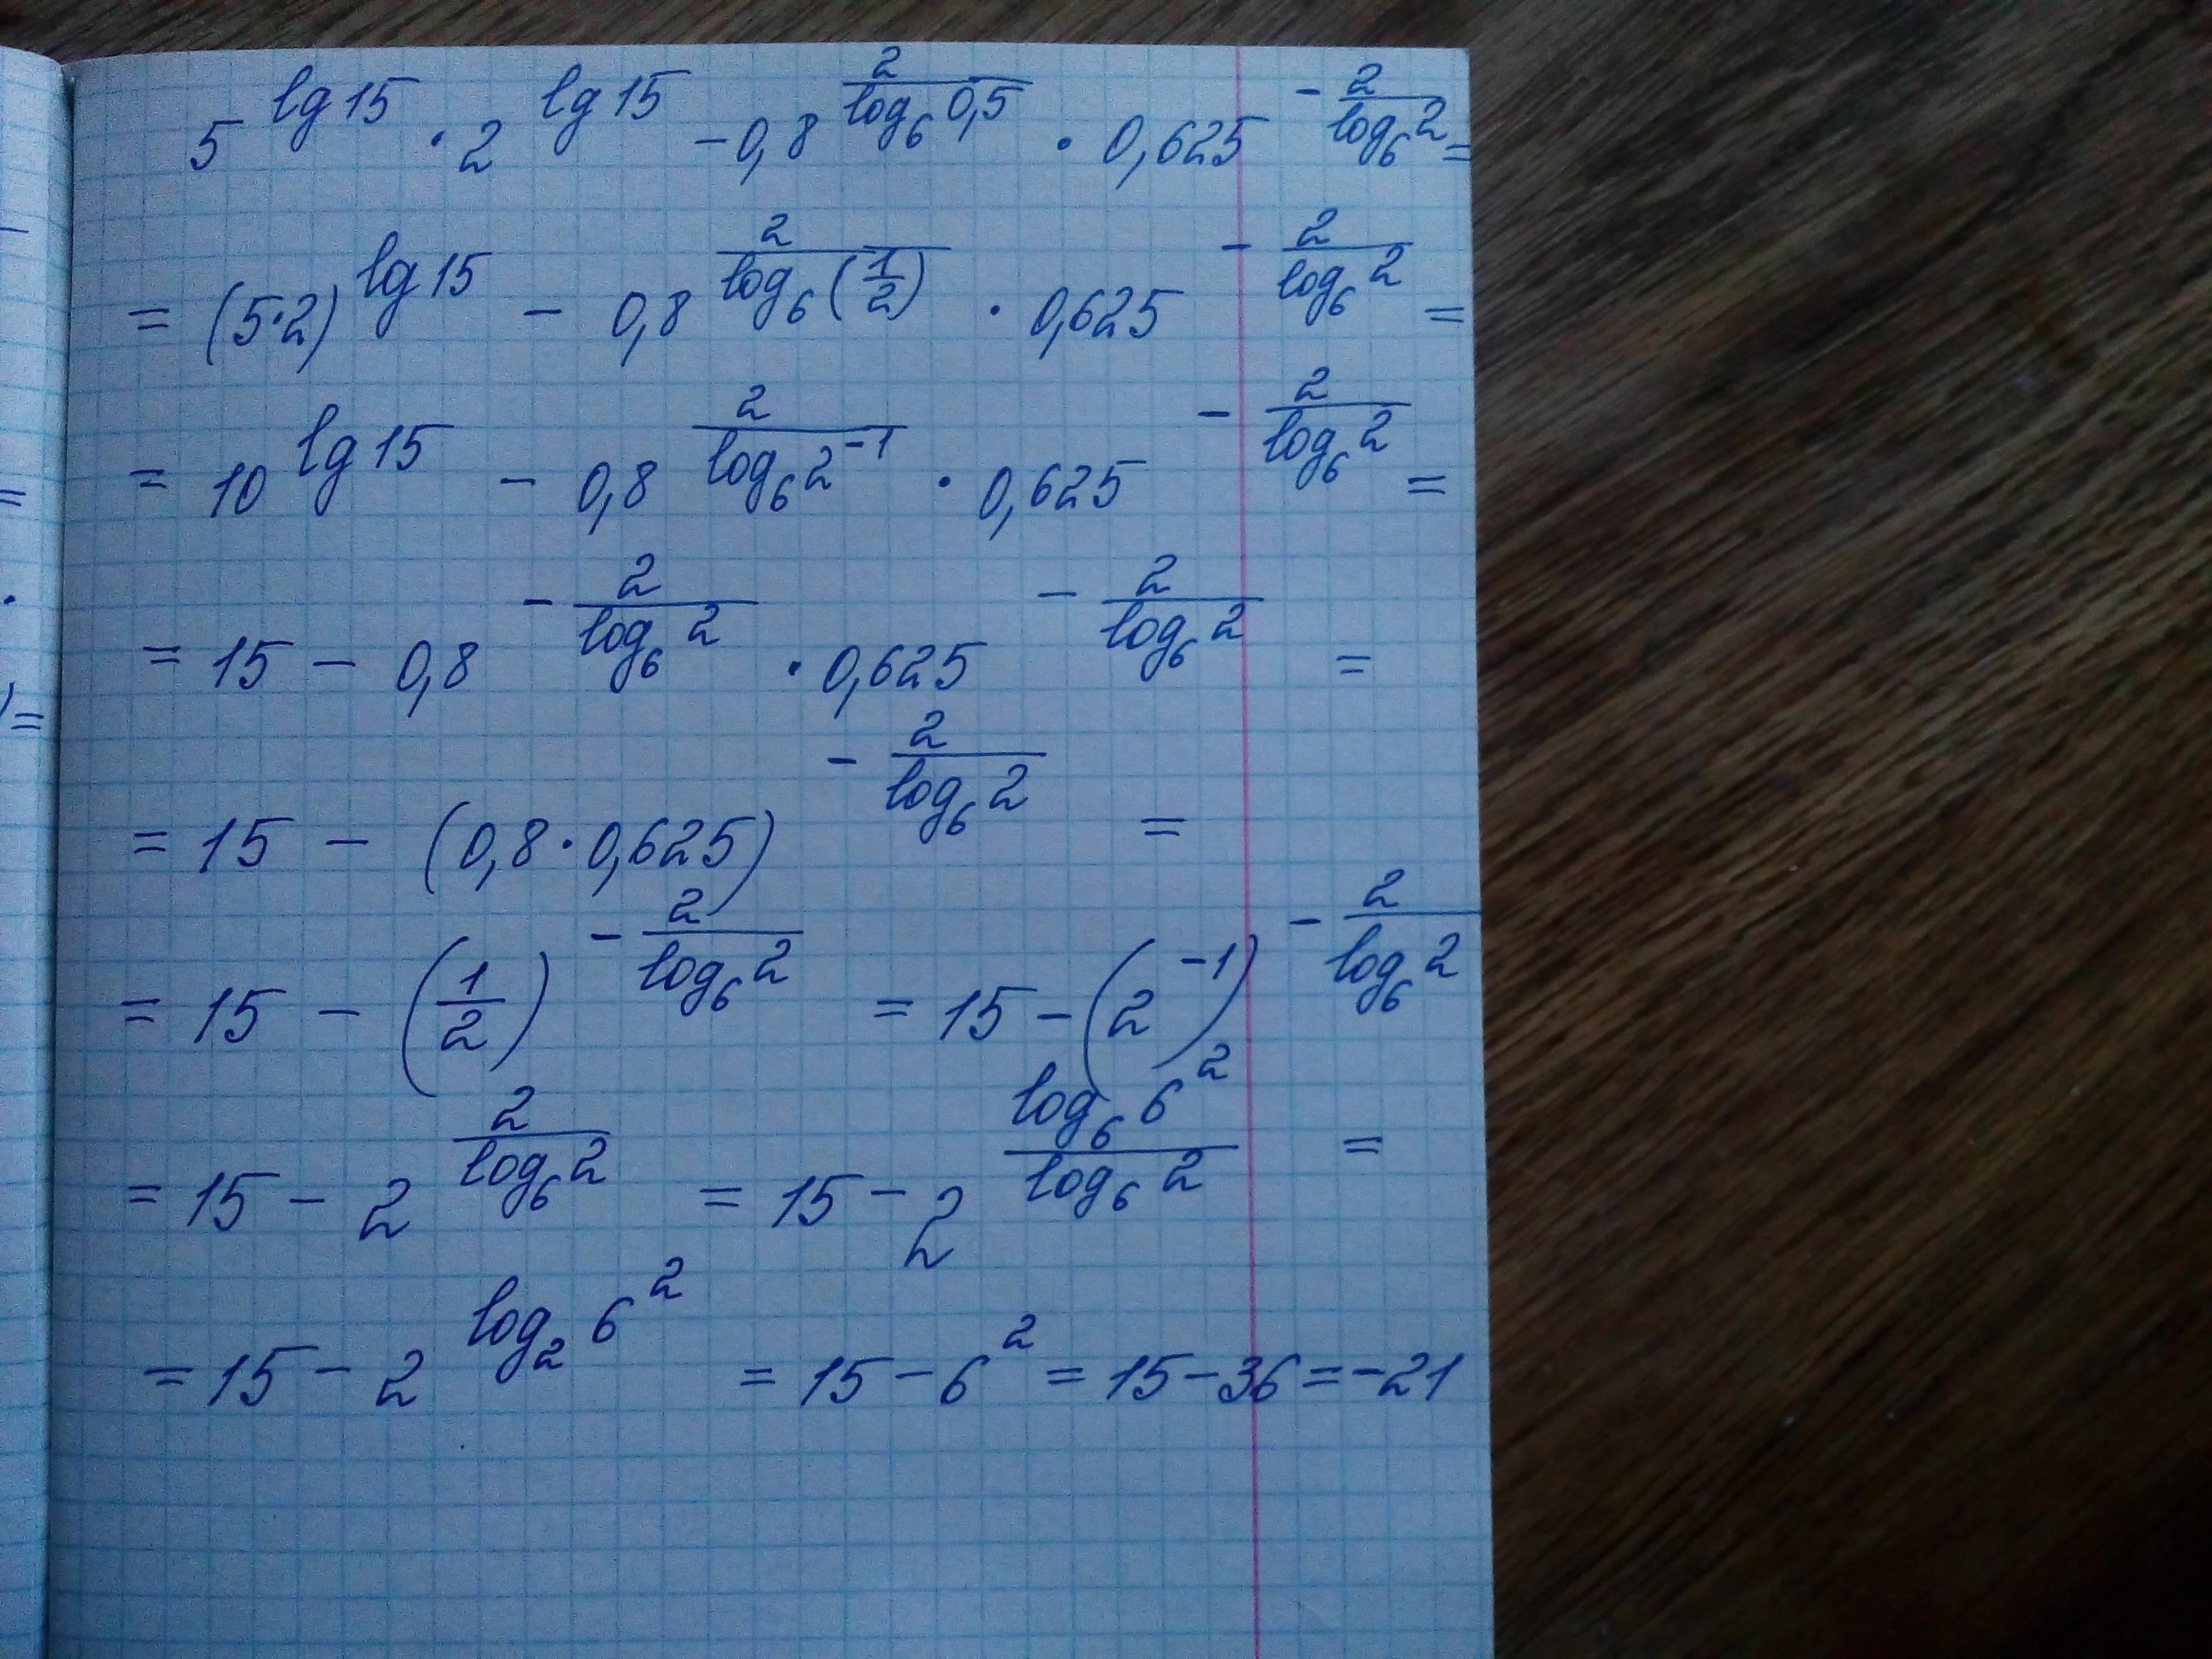 5^{lg 15} · 2^{lg 15} - 0,8^{\frac{2}{log_6 0,5}} · 0,625^{-\frac{2}{log_6 2}} =
= (5·2)^{lg 15} - 0,8^{\frac{2}{log_6 (\frac{1}{2})}} · 0,625^{-\frac{2}{log_6 2}} =
= 10^{lg 15} - 0,8^{\frac{2}{log_6 2^{-1}}} · 0,625^{-\frac{2}{log_6 2}} =
= 15 - 0,8^{-\frac{2}{log_6 2}} · 0,625^{-\frac{2}{log_6 2}} =
= 15 - (0,8 · 0,625)^{-\frac{2}{log_6 2}} =
= 15 - (\frac{1}{2})^{-\frac{2}{log_6 2}} = 15 - (2^{-1})^{-\frac{2}{log_6 2}}
= 15 - 2^{\frac{2}{log_6 2}} = 15 - 2^{\frac{log_6 6^2}{log_6 2}} =
= 15 - 2^{log_2 6^2} = 15 - 6^2 = 15 - 36 = -21